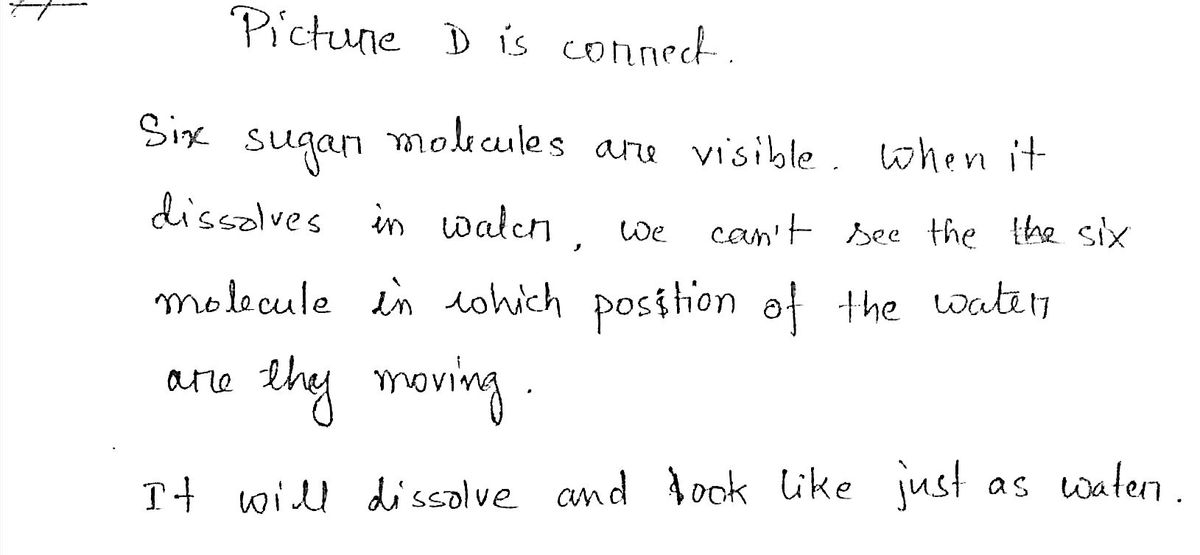 Picture D is correct.
Six sugar molecules are visible. When it
dissolves in water, we can't see the the six
molecule in which position of the water
are they moving.
It will dissolve and look like just as water.